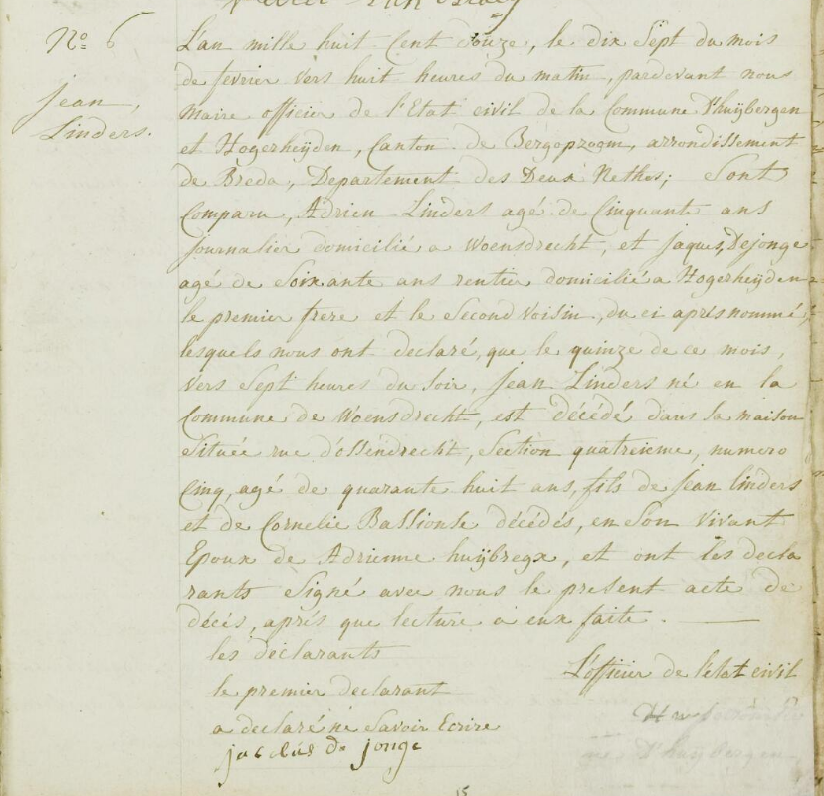 N.o 6
Jean,
Linders.
L'an mille huit Cent douze, le dix Sept du mois
de fevrier vers huit heures du matin, pardevant nous
Maire officier de l'Etat civil de la Commune d'huijbergen
et Hogerheijden, Canton de Bergopzoom, arrondissement
de Breda, Departement des Deux Nethes; Sont
Comparu, Adrien Linders agé de Cinquant ans
journalier domicilié a Woensdrecht, et jaques Dejonge
agé de Soixante ans rentier domicilié a Hogerheijden
le premier frere et le Second Voisin, du ci après nommé,
lesquels nous ont declaré, que le quinze de ce mois,
vers Sept heures du Soir, Jean Linders né en la
Commune de Woensdrecht, est décédé dans la maison
Située rue d'ossendrecht, Section quatrieme, numero
Cinq, agé de quarante huit ans, fils de Jean linders
et de Cornelie décédés, en Son Vivant
Epoux de Adrienne huijbregx, et ont les decla
rants Signé avec nous le present acte de
décès, après que lecture a eux faite.
les déclarants
le premier declarant
a declaré ne Savoir Ecrire
de jonge
L'officier de l'état civil
15